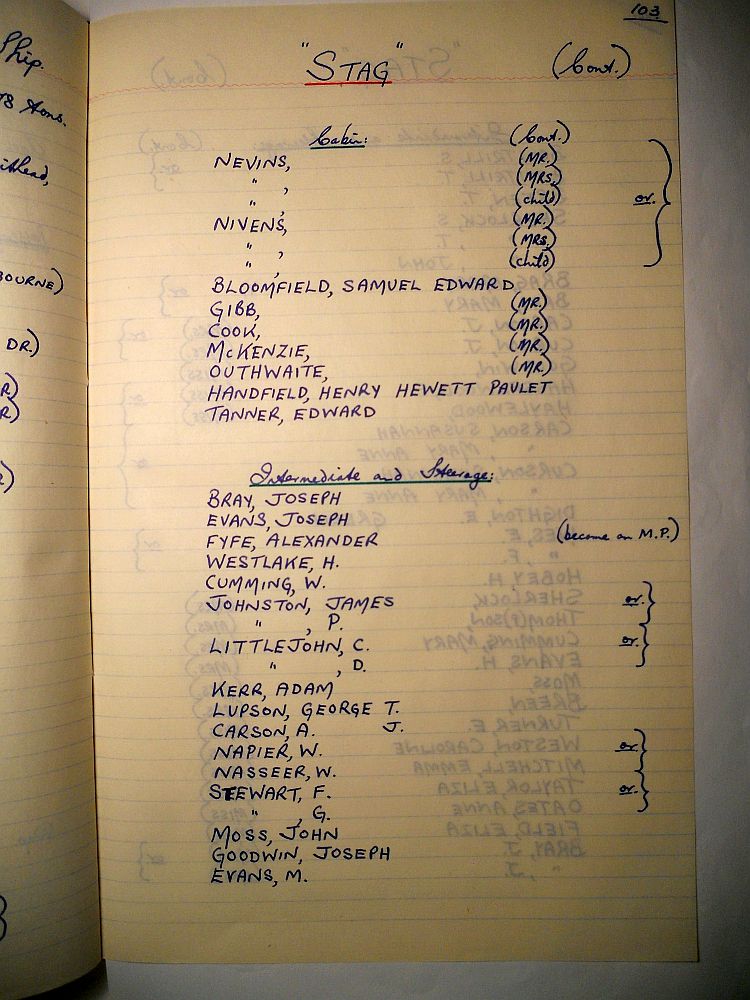 103
"STAG" (Cont.)
Cabin: (Cont.)
NEVINS, (MR.)
" , (MRS.)
" , (child)
or.
NIVENS, (MR.)
" , (MRS.)
" , (child)
BLOOMFIELD, SAMUEL EDWARD
GIBB, (MR.)
COOK, (MR.)
McKENZIE, (MR.)
OUTHWAITE, (MR.)
HANDFIELD, HENRY HEWETT PAULET
TANNER, EDWARD
Intermediate and Steerage:
BRAY, JOSEPH
EVANS, JOSEPH
FYFE, ALEXANDER (became an M.P.)
WESTLAKE, H.
CUMMING, W.
JOHNSTON, JAMES or.
" , P.
LITTLEJOHN, C. or.
" , D.
KERR, ADAM
LUPSON, GEORGE T.
CARSON, A. J.
NAPIER, W. or.
NASSEER, W.
STEWART, F. or.
" , G.
MOSS, JOHN
GOODWIN, JOSEPH
EVANS, M.
Ship.
78 Tons.
BOURNE)
DR.)
R)
R)